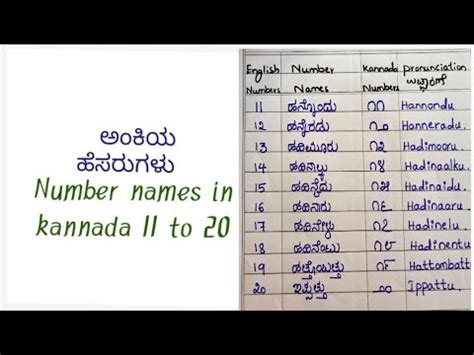 ಅಂಕಿಯ
ಹೆಸರುಗಳು
Number names in
kannada 11 to 20
English Number Kannada pronunciation
Numbers Names Numbers ಉಚ್ಛಾರಣೆ
11 ಹನ್ನೊಂದು ೧೧ Hannondu
12 ಹನ್ನೆರಡು ೧೨ Hanneradu.
13 ಹದಿಮೂರು ೧೩ Hadimooru.
14 ಹದಿನಾಲ್ಕು ೧೪ Hadinaalku.
15 ಹದಿನೈದು ೧೫ Hadinaidu.
16 ಹದಿನಾರು ೧೬ Hadinaaru.
17 ಹದಿನೇಳು ೧೭ Hadinelu.
18 ಹದಿನೆಂಟು ೧೮ Hadinentu
19 ಹತ್ತೊಂಬತ್ತು ೧೯ Hattombatt
20 ಇಪ್ಪತ್ತು ೨೦ Ippattu.